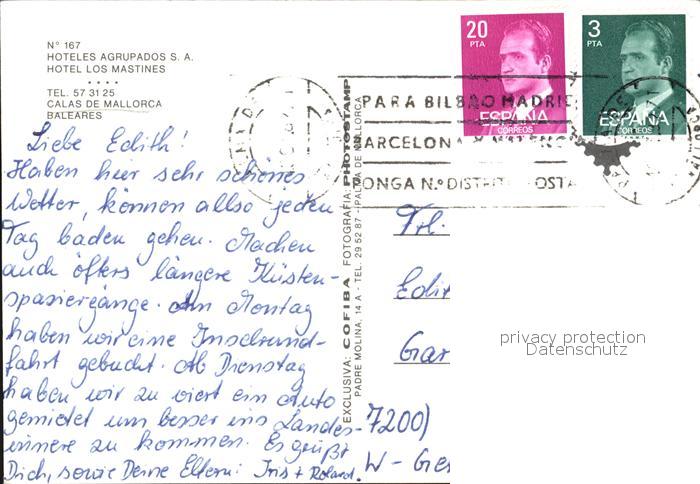 N° 167
HOTELES AGRUPADOS S. A.
HOTEL LOS MASTINES
TEL. 57 31 25
CALAS DE MALLORCA
BALEARES
Liebe Edith!
Haben hier sehr schönes
Wetter, können allso jeden
Tag baden gehen. Machen
auch öfters längere Küsten-
spaziergänge. Am Montag
haben wir eine Inselrund-
fahrt gebucht. Ab Dienstag
haben wir zu viert ein Auto
gemietet um besser ins Landes-
innere zu kommen. Es grüßt
Dich, sowie Deine Eltern: Iris + Roland.
EXCLUSIVA: COFIBA FOTOGRAFIA PHOTOSTAMP
PADRE MOLINA, 14 A - TEL. 29 52 87 - PALMA DE MALLORCA
20
PTA
ESPAÑA
CORREOS
3
PTA
ESPAÑA
CORREOS
PARA BILBAO MADRID
BARCELONA
PONGA N.º DISTRITO POSTA
Frl.
Edit
Gar
7200)
W - Ger
privacy protection
Datenschutz